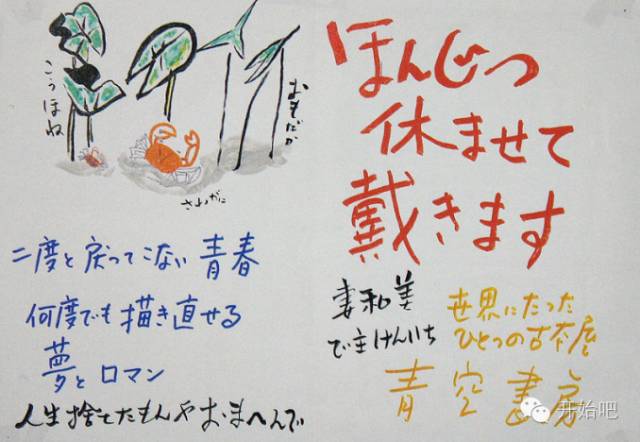 こうほね
おもだか
さわがに
二度と戻ってこない青春
何度でも描き直せる
夢とロマン
人生捨てたもんやおまへんで
ほんじつ
休ませて
戴きます
妻和美
てい主けんいち
世界にたった
ひとつの古本屋
青空書房
开始吧